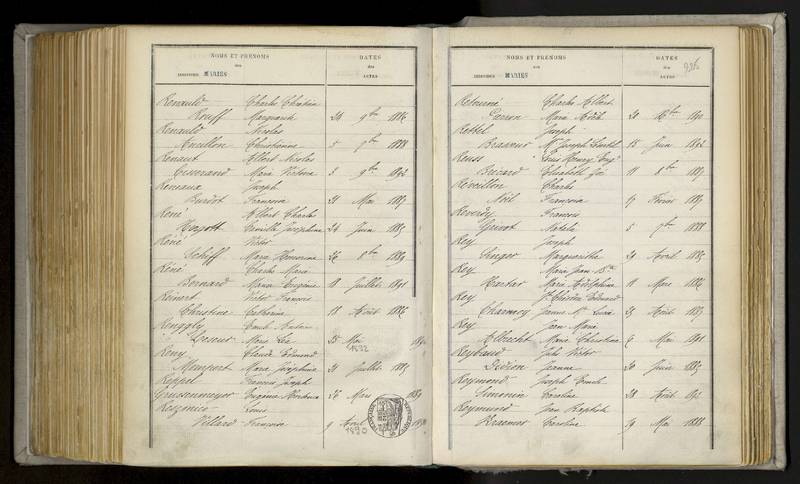 NOMS ET PRÉNOMS
des
INDIVIDUS MARIÉS
DATES
des
ACTES
Renauld Charles Christian
Rouff Marguerite 24 9bre 1886
Renauld Nicolas
Ancillon Christianne 5 7bre 1888
Renaut Albert Nicolas
Marie Victoria 5 9bre 1892
Renneaux Joseph
Burdot Françoise 21 Mai 1887
René Albert Charles
Camille Joséphine 24 Juin 1885
René Victor
Scheff Marie Honorine 26 8bre 1889
René Charles Marie
Bernard Marie Eugénie 18 Juillet 1891
Rénert Victor François
Christine Catherine 18 Août 1886
Renggly Emile
Marie 25 Mai 189
1892
Reny Claude Edmond
Marie Joséphine 21 Juillet 1885
Reppel Francis Joseph
Eugénie 26 Mars 1889
Louis
Villard Françoise 9 Avril 1890
1890
NOMS ET PRÉNOMS
des
INDIVIDUS MARIÉS
DATES
des
ACTES
Retourné Charles Albert
Perron Marie 20 Xbre 1890
Rettel Joseph
Brasseur Joseph 15 Juin 1892
Reuss Louis Henry Eug
Bricard Elisabeth 11 8bre 1887
Réveillon Charles
Noël Françoise 17 Février 1887
Reverdy François
Grivot Natalie 5 7bre 1888
Rey Joseph
Singer Margueritte 29 Avril 1885
Rey Marie Jean Bte
Hantar Marie Adolphine 18 Mars 1886
Rey Edouard
Charmoy Jeanne Lucie 23 Août 1887
Rey Jean Marie
Albrecht Marie Christine 6 Mai 1891
Reybaud Jules Victor
Didion Jeanne 20 Juin 1885
Reymond Joseph Emile
Simonin Caroline 28 Août 1892
Reymond Jean Baptiste
Kraemer Caroline 19 Mai 1888